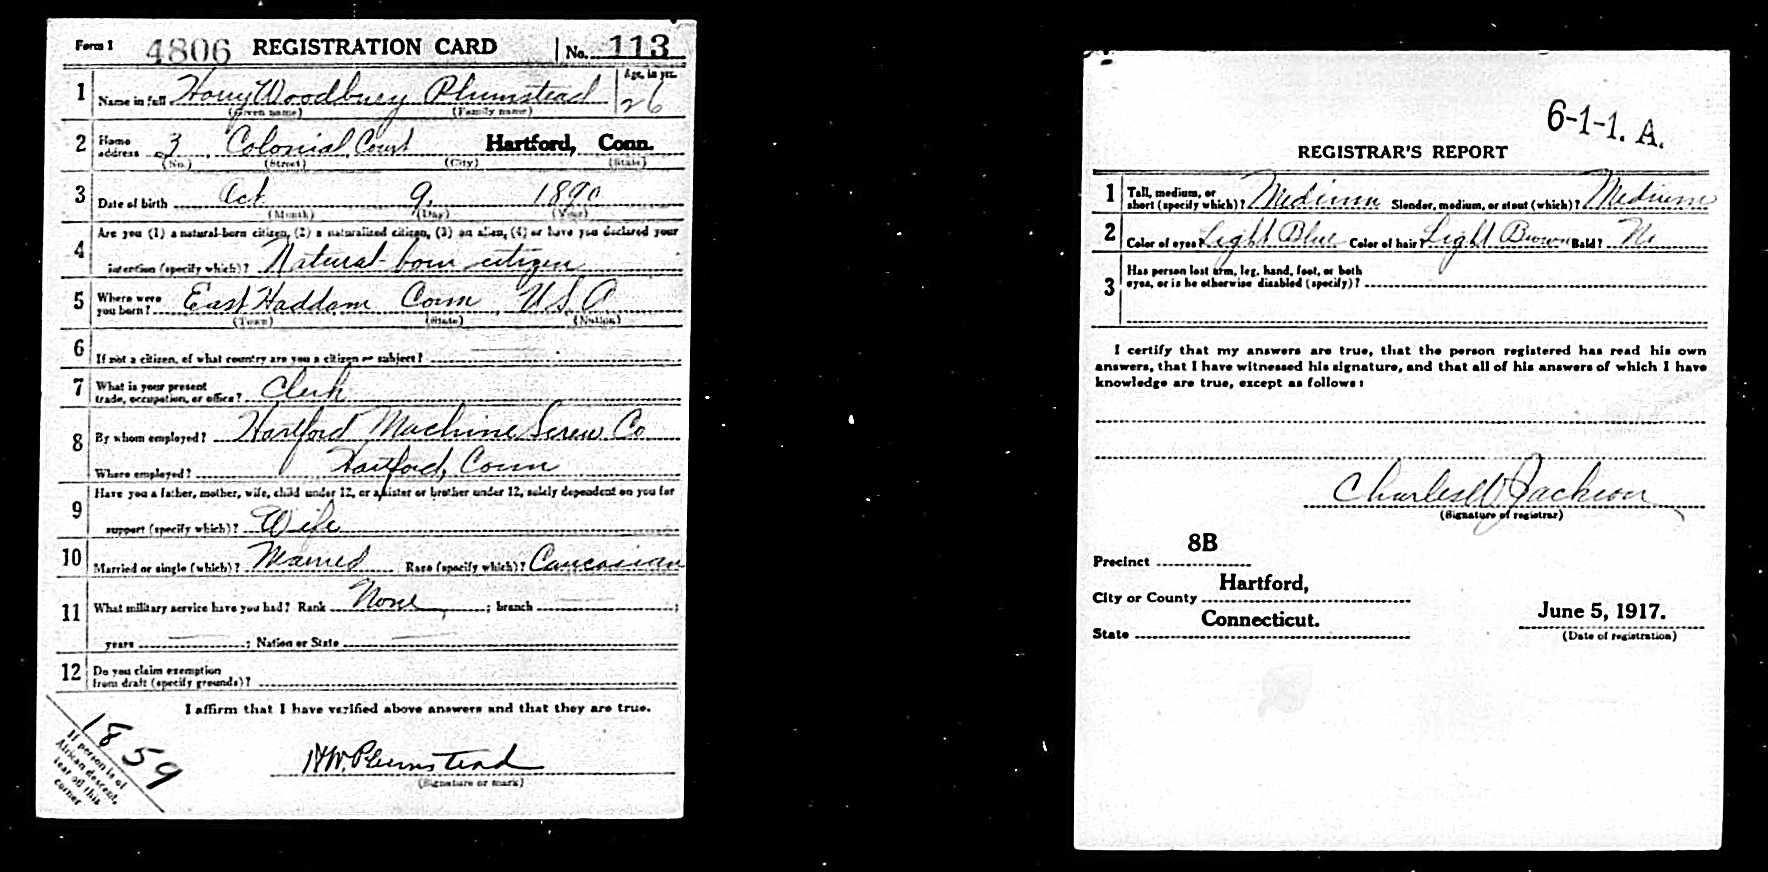 Form 1 4806 REGISTRATION CARD No. 113
1 Name in full Harry Woodbury Plumstead Age, in yrs. 26
(Given name) (Family name)
2 Home address 3 Colonial Court Hartford, Conn.
(No.) (Street) (City) (State)
3 Date of birth Oct 9, 1890
(Month) (Day) (Year)
4 Are you (1) a natural-born citizen, (2) a naturalized citizen, (3) an alien, (4) or have you declared your
intention (specify which)? Natural-born citizen
5 Where were you born? East Haddam Conn U.S.A
(Town) (State) (Nation)
6 If not a citizen, of what country are you a citizen or subject?
7 What is your present trade, occupation, or office? Clerk
8 By whom employed? Hartford Machine Screw Co
Where employed? Hartford, Conn
9 Have you a father, mother, wife, child under 12, or a sister or brother under 12, solely dependent on you for
support (specify which)? Wife
10 Married or single (which)? Married Race (specify which)? Caucasian
11 What military service have you had? Rank None ; branch ;
years ; Nation or State
12 Do you claim exemption from draft (specify grounds)?
I affirm that I have verified above answers and that they are true.
H W. Plumstead
(Signature or mark)
1859
If person is of
African descent,
tear off this
corner
6-1-1. A.
REGISTRAR'S REPORT
1 Tall, medium, or short (specify which)? Medium Slender, medium, or stout (which)? Medium
2 Color of eyes? Light Blue Color of hair? Light Brown Bald? No
3 Has person lost arm, leg, hand, foot, or both
eyes, or is he otherwise disabled (specify)?
I certify that my answers are true, that the person registered has read his own
answers, that I have witnessed his signature, and that all of his answers of which I have
knowledge are true, except as follows:
Charles W Jackson
(Signature of registrar)
Precinct 8B
City or County Hartford,
State Connecticut.
June 5, 1917.
(Date of registration)